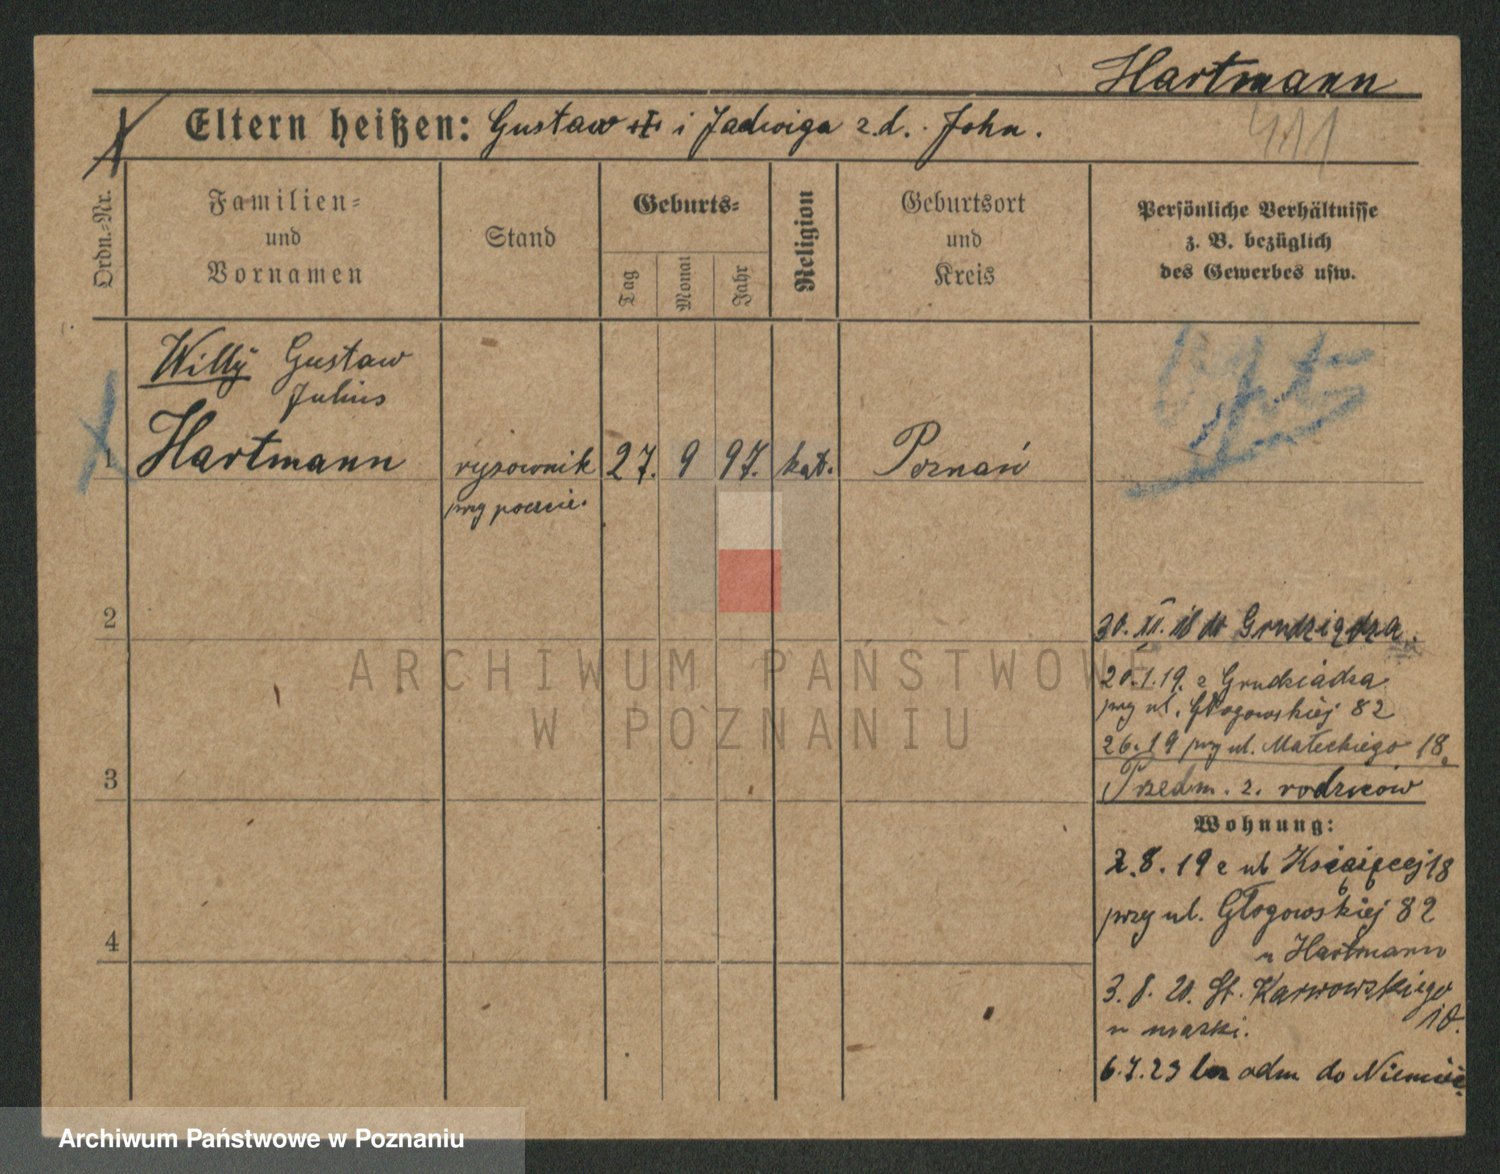 Hartmann
Eltern heißen: Gustaw i Jadwiga z.d. John.
411
Ordn.-Nr.
Familien-
und
Vornamen
Stand
Geburts-
Tag
Monat
Jahr
Religion
Geburtsort
und
Kreis
Persönliche Verhältnisse
z. B. bezüglich
des Gewerbes usw.
Willy Gustaw
Julius
1 Hartmann rysownik 27. 9 97. kat. Poznań
przy poczcie.
2
30. XI. 18 do Grudziądza.
20.1.19. z Grudziądza
przy ul. Głogowskiej 82
26. 19 przy ul. Małeckiego 18.
3
Przedm. z. rodziców
Wohnung:
2.8.19 z ul Książęcej 18
przy ul. Głogowskiej 82
4
u Hartmann
3. 8. 20. St. Karwowskiego
10.
u matki.
6.7.23 odm do Niemiec
ARCHIWUM PAŃSTWOWE
W POZNANIU
Archiwum Państwowe w Poznaniu